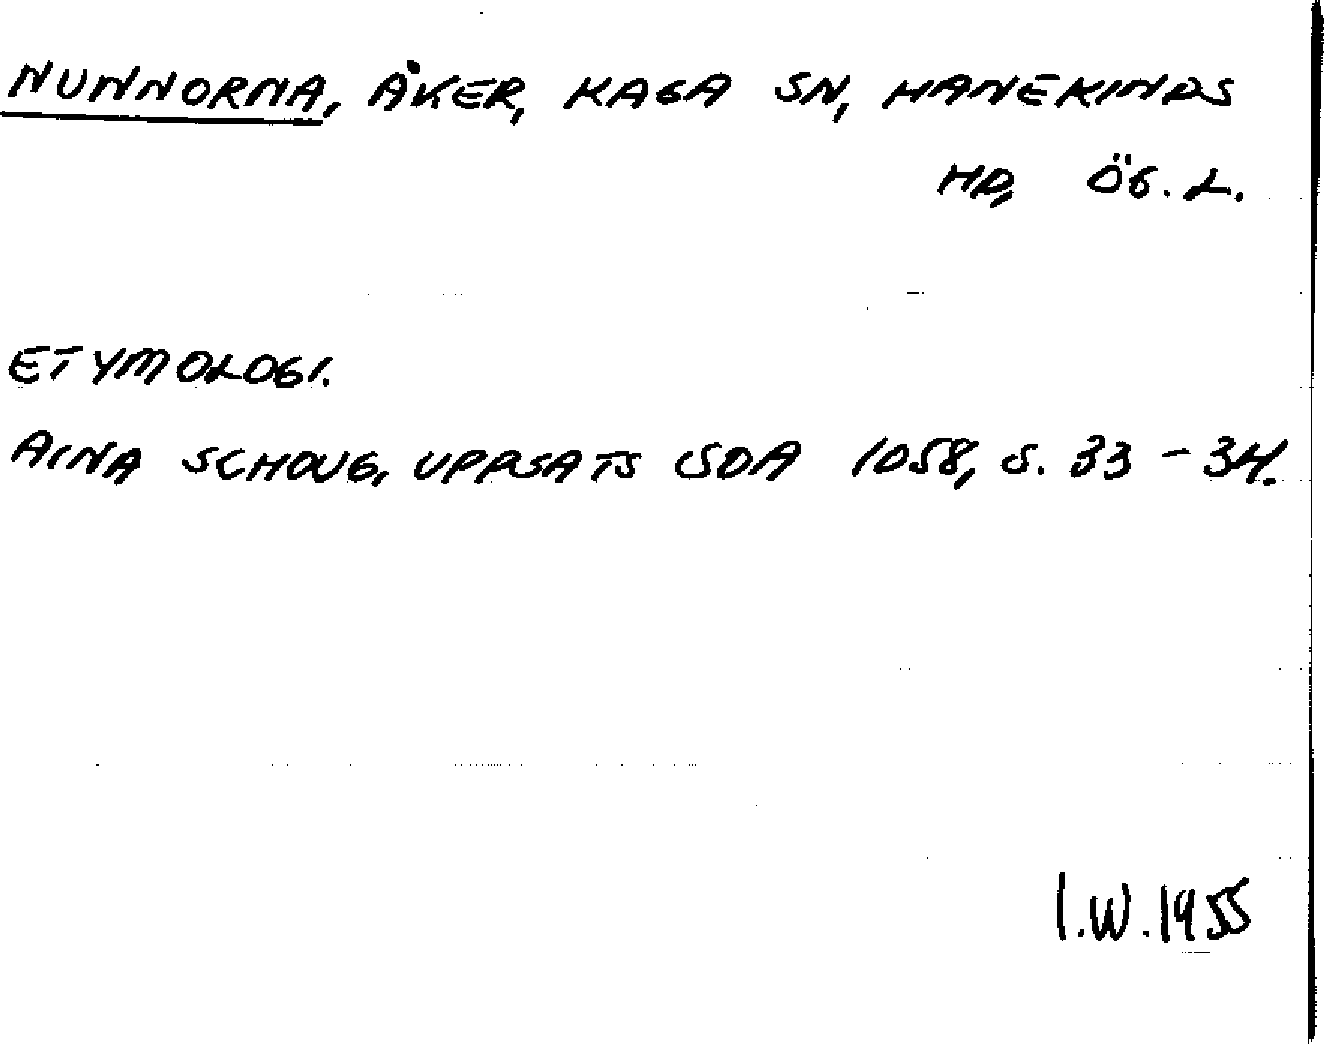 NUNNORNA, ÅKER, KAGA SN, HANEKINDS
HD, ÖG. L.
ETYMOLOGI.
AINA SCHOUG, UPPSATS SOA 1058, S. 33 - 34.
I.W. 1955